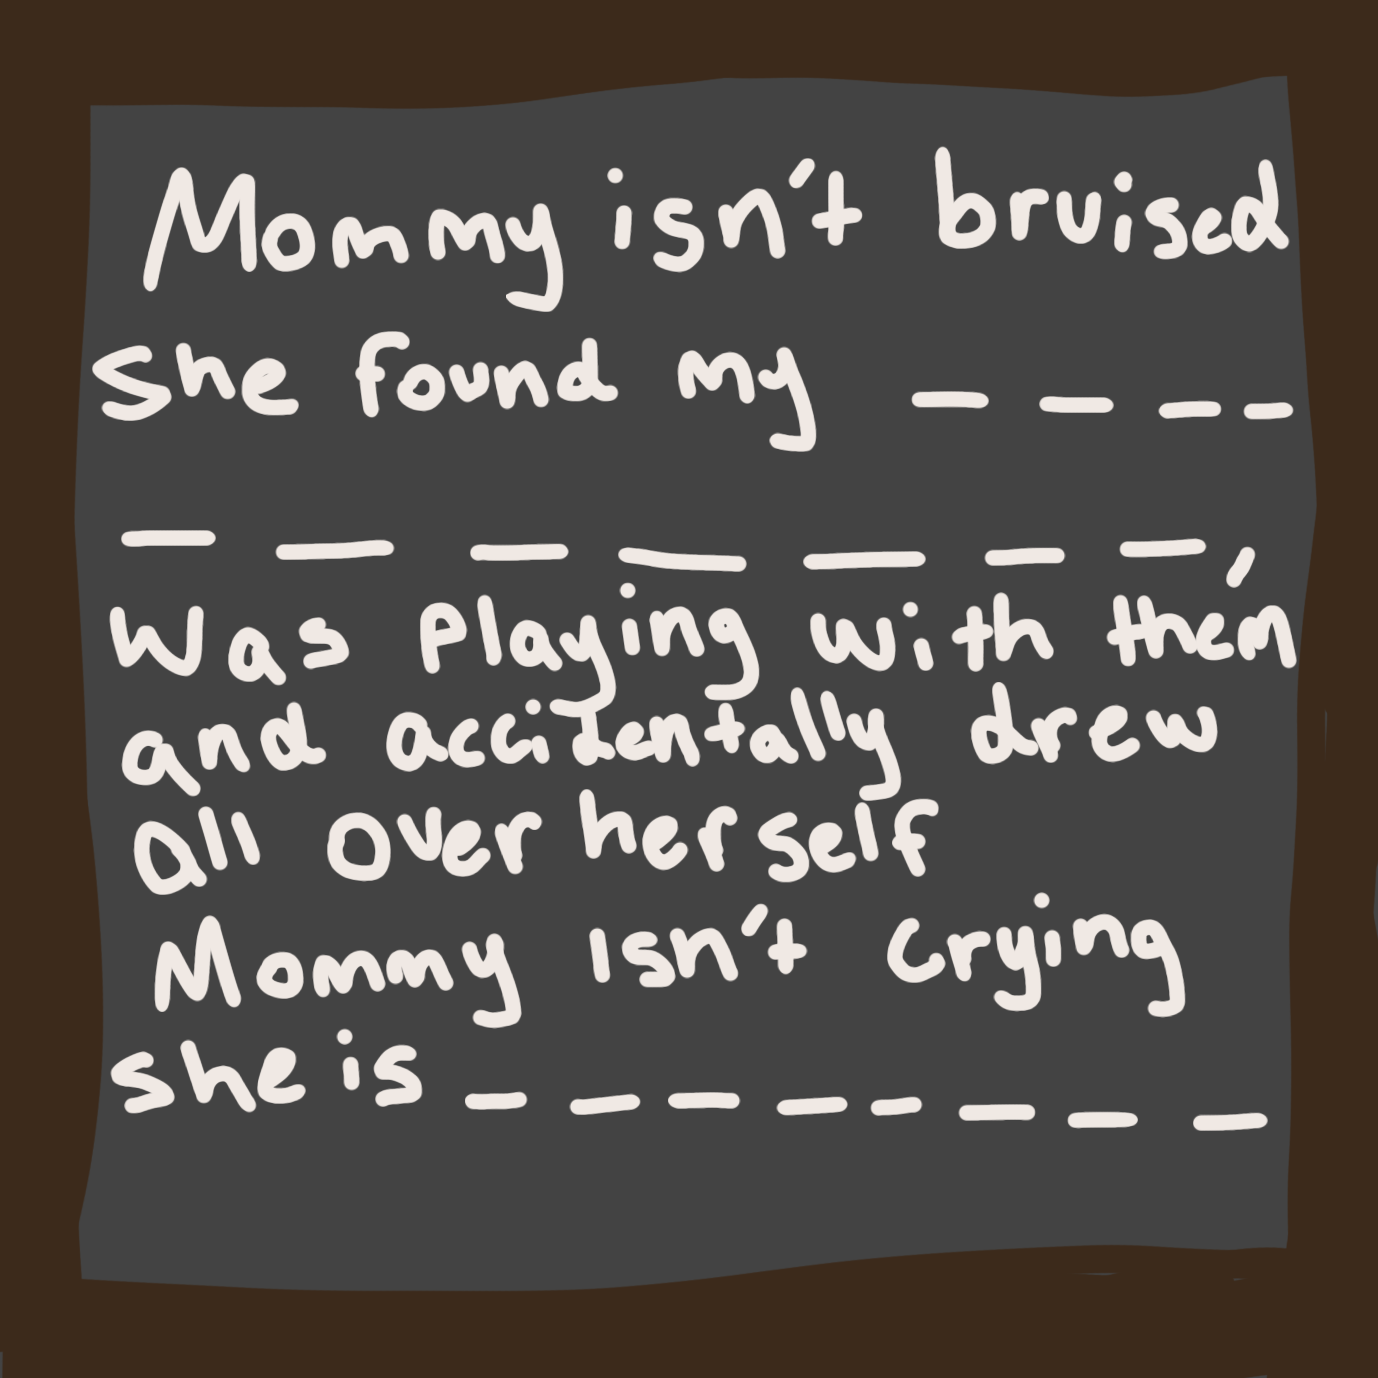 Mommy isn't bruised
She found my _ _ _ _
_ _ _ _ _ _ _,
Was playing with them
and accidentally drew
all over herself
Mommy Isn't crying
she is _ _ _ _ _ _ _ _